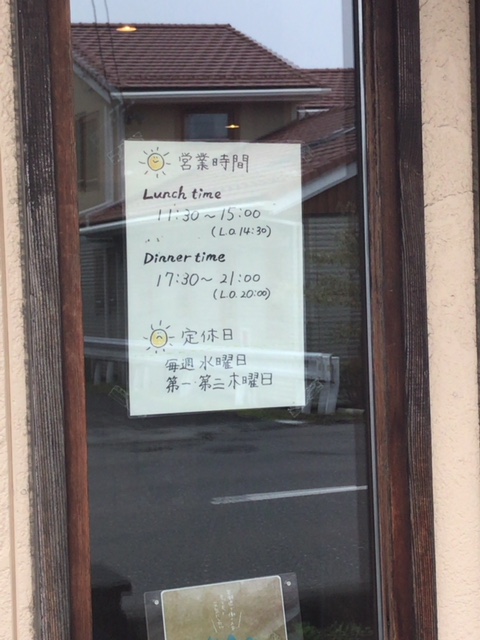 営業時間
Lunch time
11:30～15:00
(L.O.14:30)
Dinner time
17:30～21:00
(L.O.20:00)
定休日
毎週水曜日
第一・第三木曜日